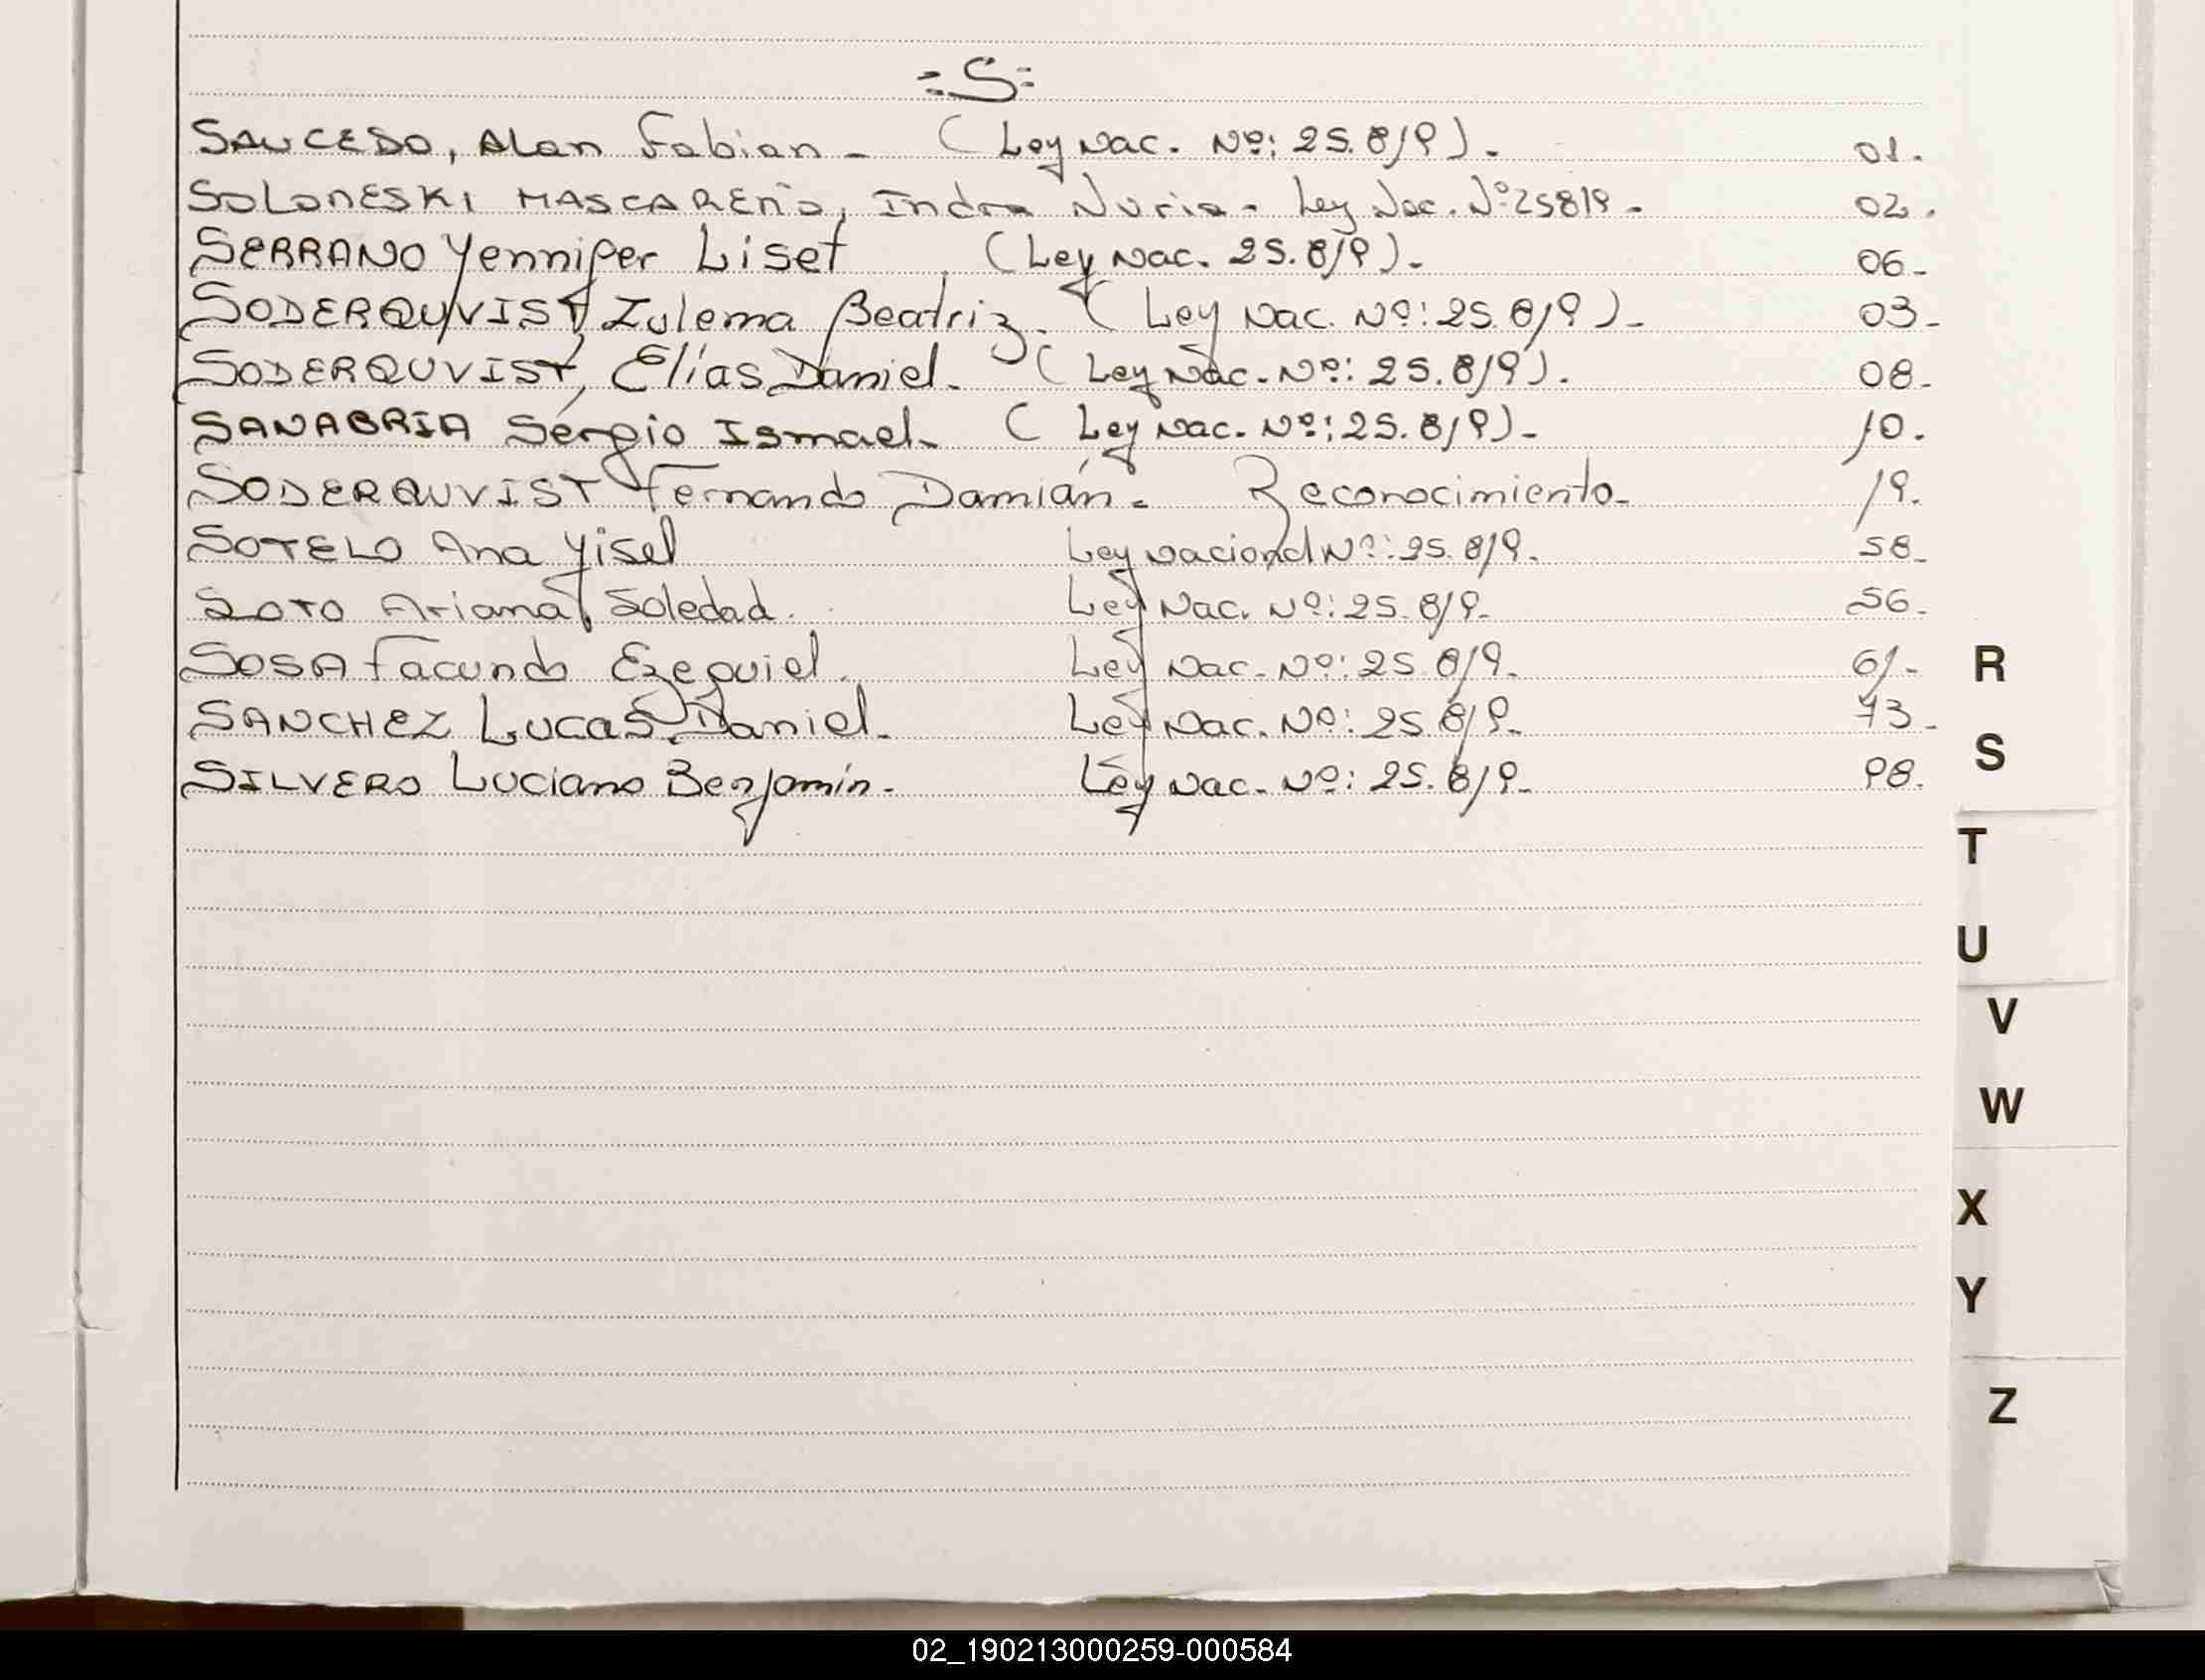 =S=
SAUCEDO, Alan Fabian - (Ley Nac. Nº: 25.819). 01.
SOLONESKI MASCAREÑO, Indra Nuria - Ley Nac. Nº 25819 - 02.
SERRANO Yennifer Liset (Ley Nac. 25.819). 06-
SODERQUVIST, Zulema Beatriz. (Ley Nac. Nº: 25.819)- 03-
SODERQUVIST, Elías Daniel. (Ley Nac. Nº: 25.819). 08-
SANABRIA Sergio Ismael- (Ley Nac. Nº: 25.819)- 10.
SODERQUVIST Fernando Damián. Reconocimiento- 19.
SOTELO Ana Yisel Ley Nacional Nº: 25.819. 58-
SOTO Ariana Soledad. Ley Nac. Nº: 25.819- 56-
SOSA Facundo Ezequiel. Ley Nac. Nº: 25.819. 61-
SANCHEZ Lucas Daniel. Ley Nac. Nº: 25.819- 73-
SILVERO Luciano Benjamín. Ley Nac. Nº: 25.819- 98.
R
S
T
U
V
W
X
Y
Z
02_190213000259-000584